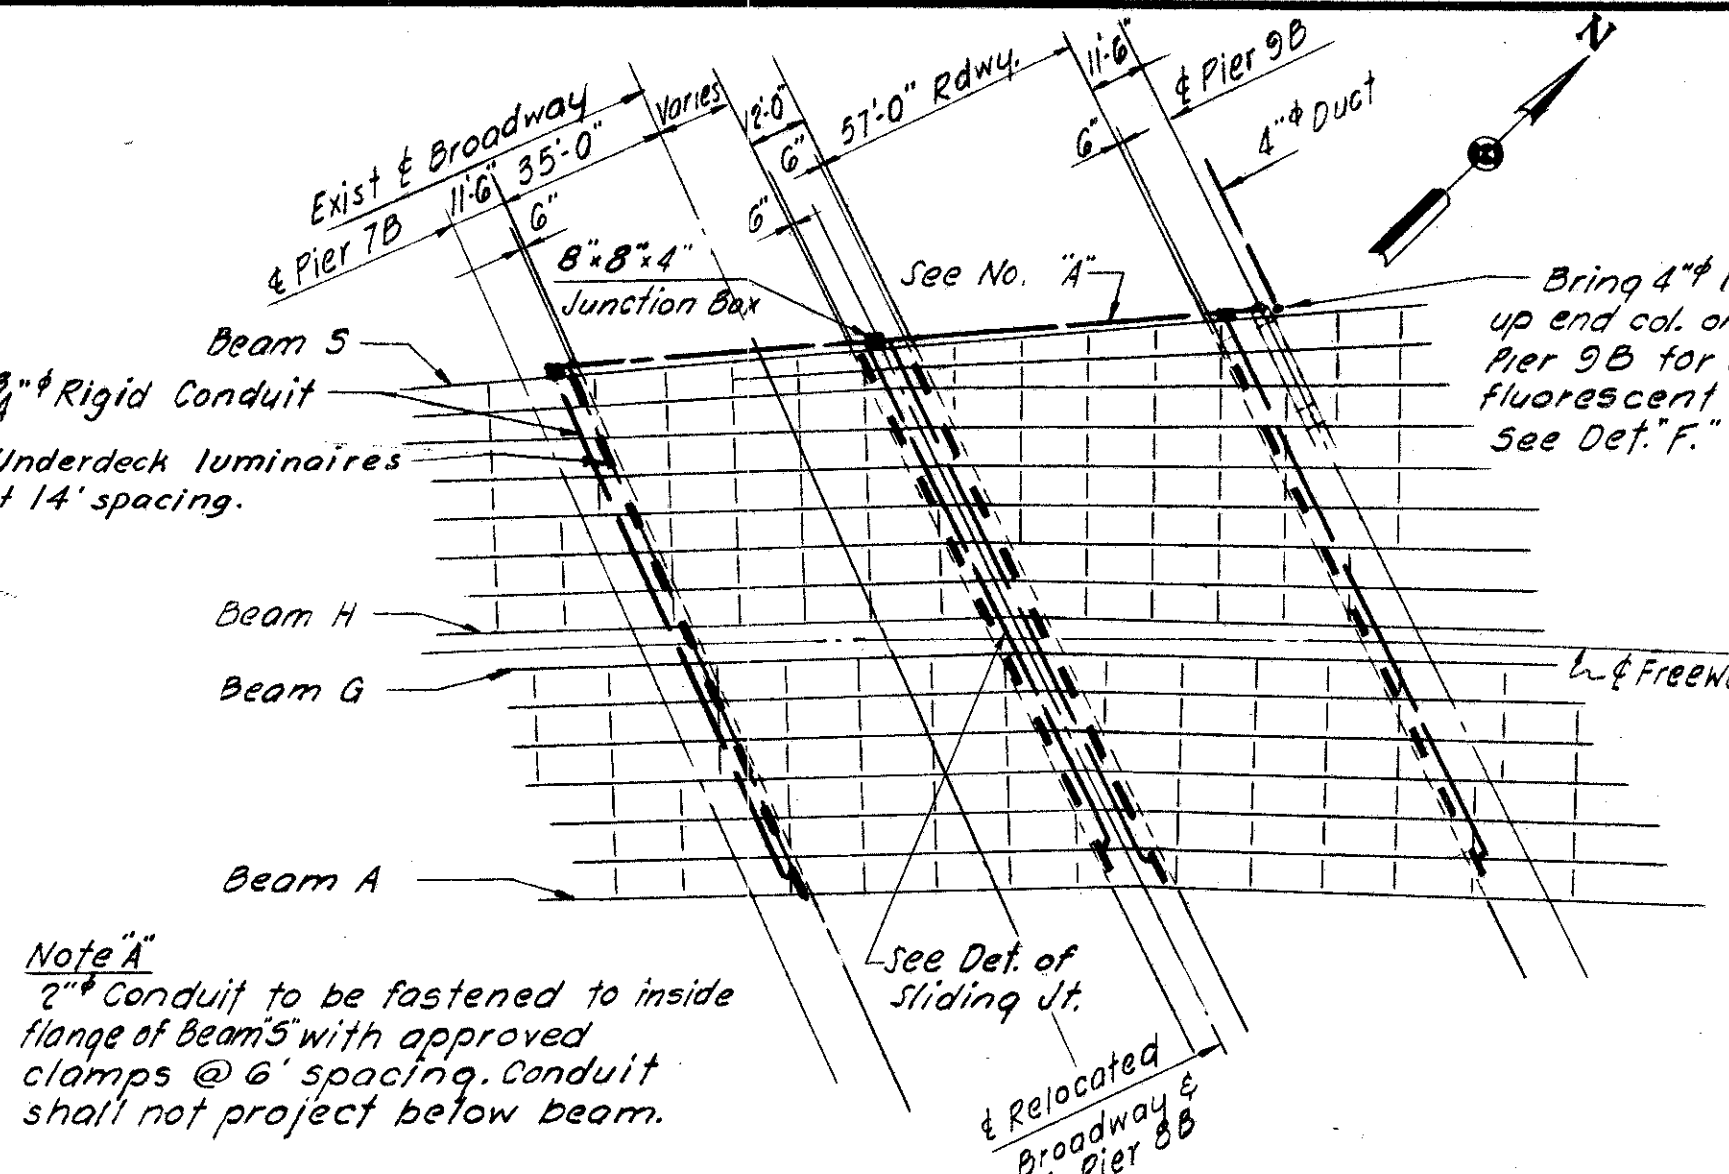 N
Exist ℄ Broadway
℄ Pier 7B
11'-6"
35'-0"
Varies
12'-0"
57'-0" Rdwy.
11'-6"
℄ Pier 9B
6"
6"
6"
6"
4"ϕ Duct
8"x8"x4"
Junction Box
See No. "A"
Bring 4"ϕ
up end col. o
Pier 9B for
fluorescent
See Det. "F."
Beam S
3/4"ϕ Rigid Conduit
Underdeck luminaires
t 14' spacing.
Beam H
Beam G
℄ Freew
Beam A
See Det. of
Sliding Jt.
Note "A"
2"ϕ Conduit to be fastened to inside
flange of Beam "S" with approved
clamps @ 6' spacing. Conduit
shall not project below beam.
℄ Relocated
Broadway &
Pier 8B